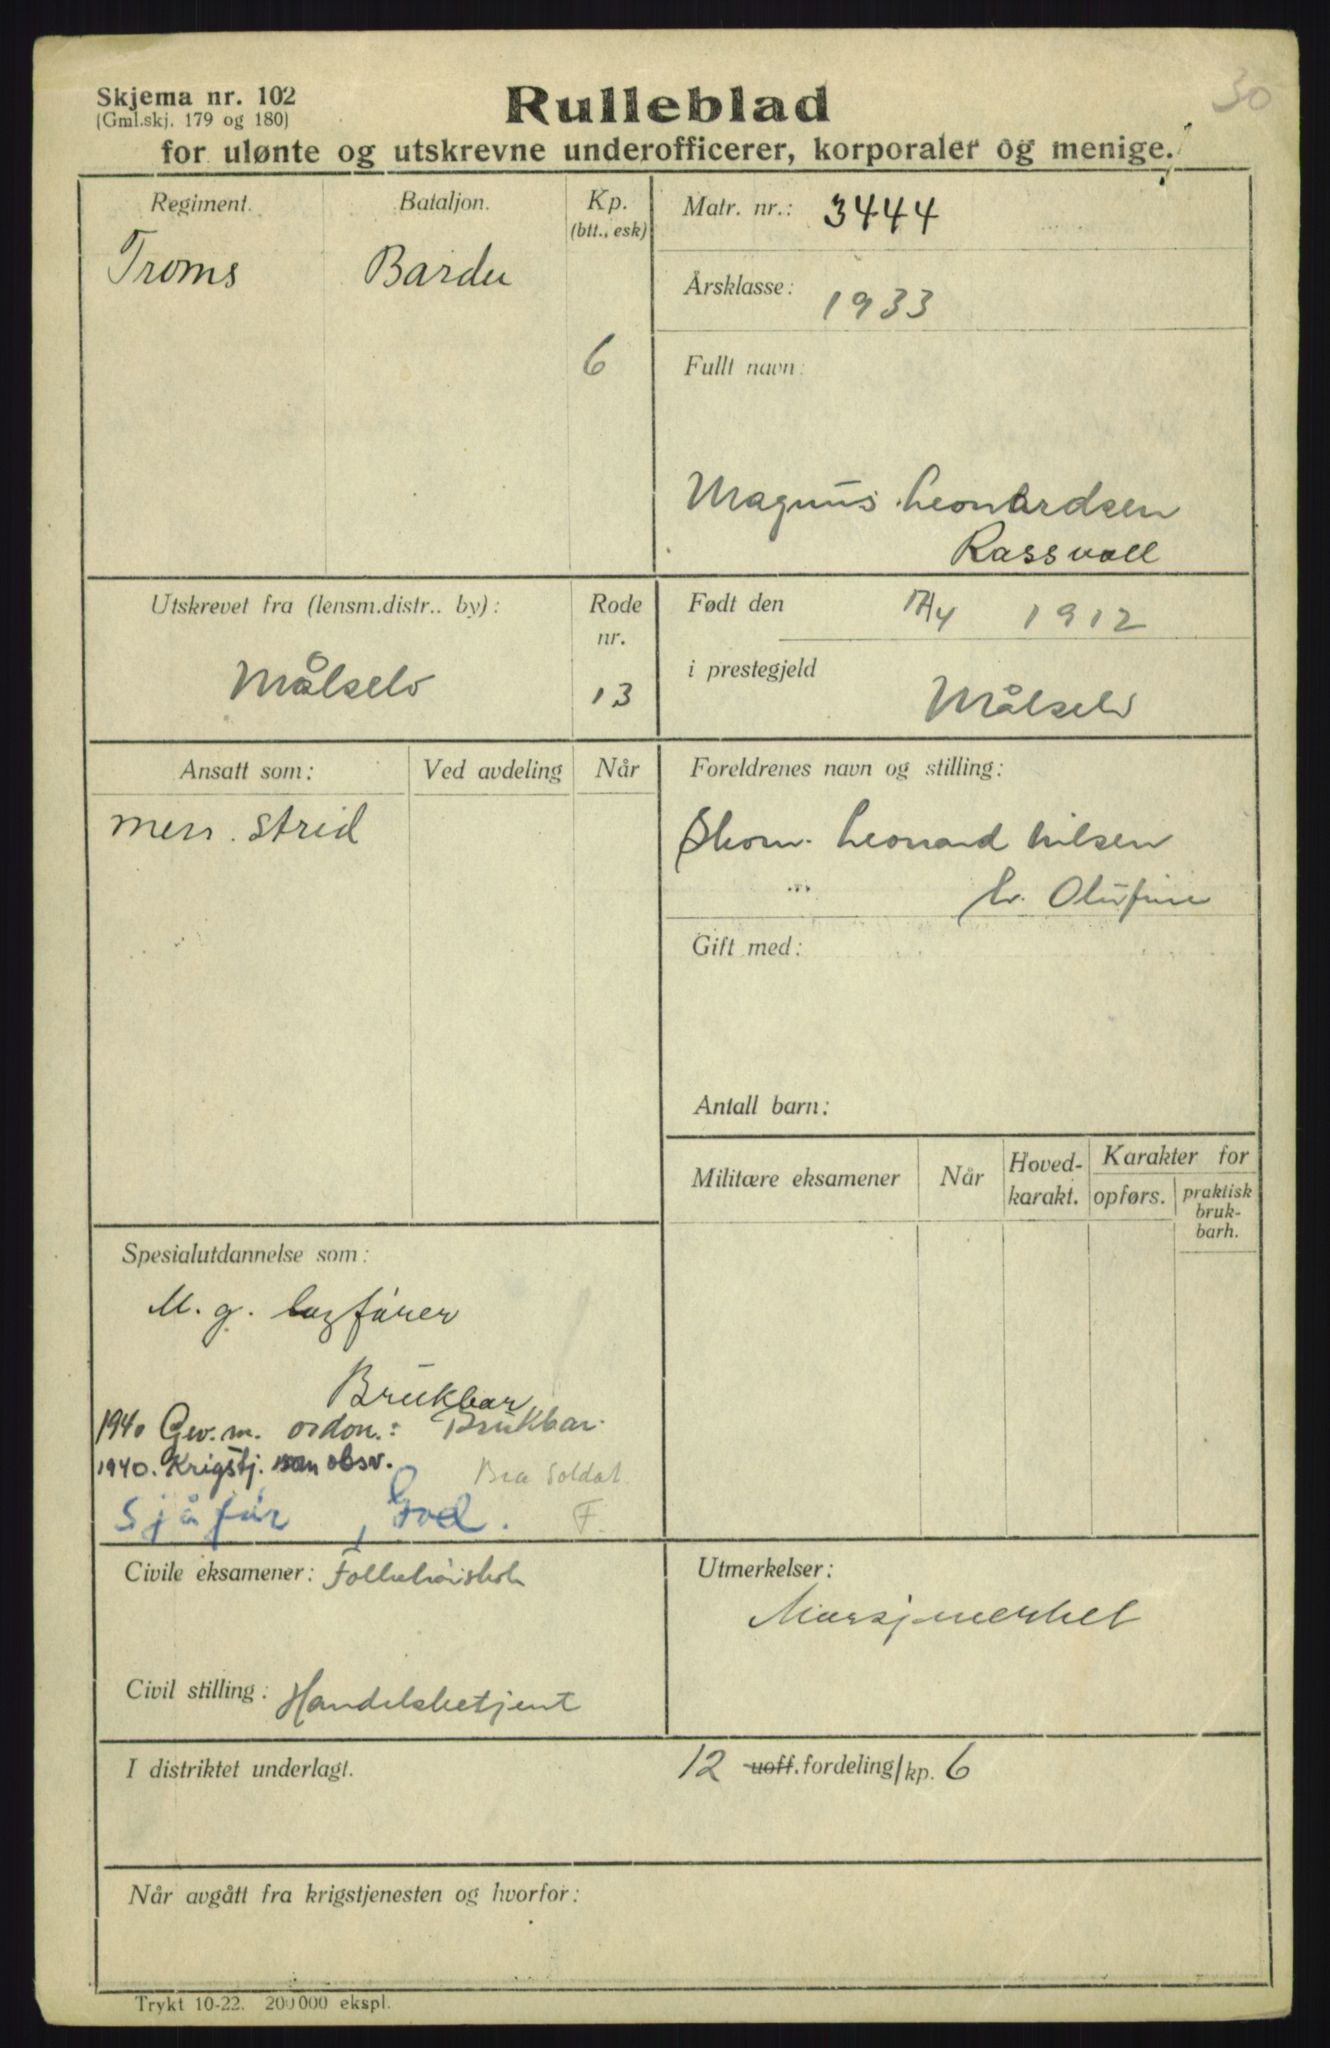 30
Skjema nr. 102
(Gml.skj. 179 og 180)
Rulleblad
for ulønte og utskrevne underofficerer, korporaler og menige.
Regiment.
Troms
Bataljon.
Bardu
Kp.
(btt., esk)
6
Matr. nr.: 3444
Årsklasse: 1933
Fullt navn:
Magnus Leonardsen
Rassvoll
Utskrevet fra (lensm.distr.. by):
Målselv
Rode
nr.
13
Født den 17/4 1912
i prestegjeld
Målselv
Ansatt som:
Ved avdeling
Når
men. strid
Foreldrenes navn og stilling:
Skom. Leonard Nilsen
" Olufine
Gift med:
Antall barn:
Militære eksamener
Når
Hoved-
karakt.
Karakter for
opførs.
praktisk
bruk-
barh.
Spesialutdannelse som:
M. g. lagfører
Brukbar
1940 Gev. m. ordon.: Brukbar
1940. Krigstj. som obsv.
Bra Soldat
Sjåfør, God. F.
Civile eksamener: Folkehøiskole
Civil stilling: Handelsbetjent
Utmerkelser:
Marsjmerket
I distriktet underlagt.
12 uoff. fordeling/kp. 6
Når avgått fra krigstjenesten og hvorfor:
Trykt 10-22. 200 000 ekspl.